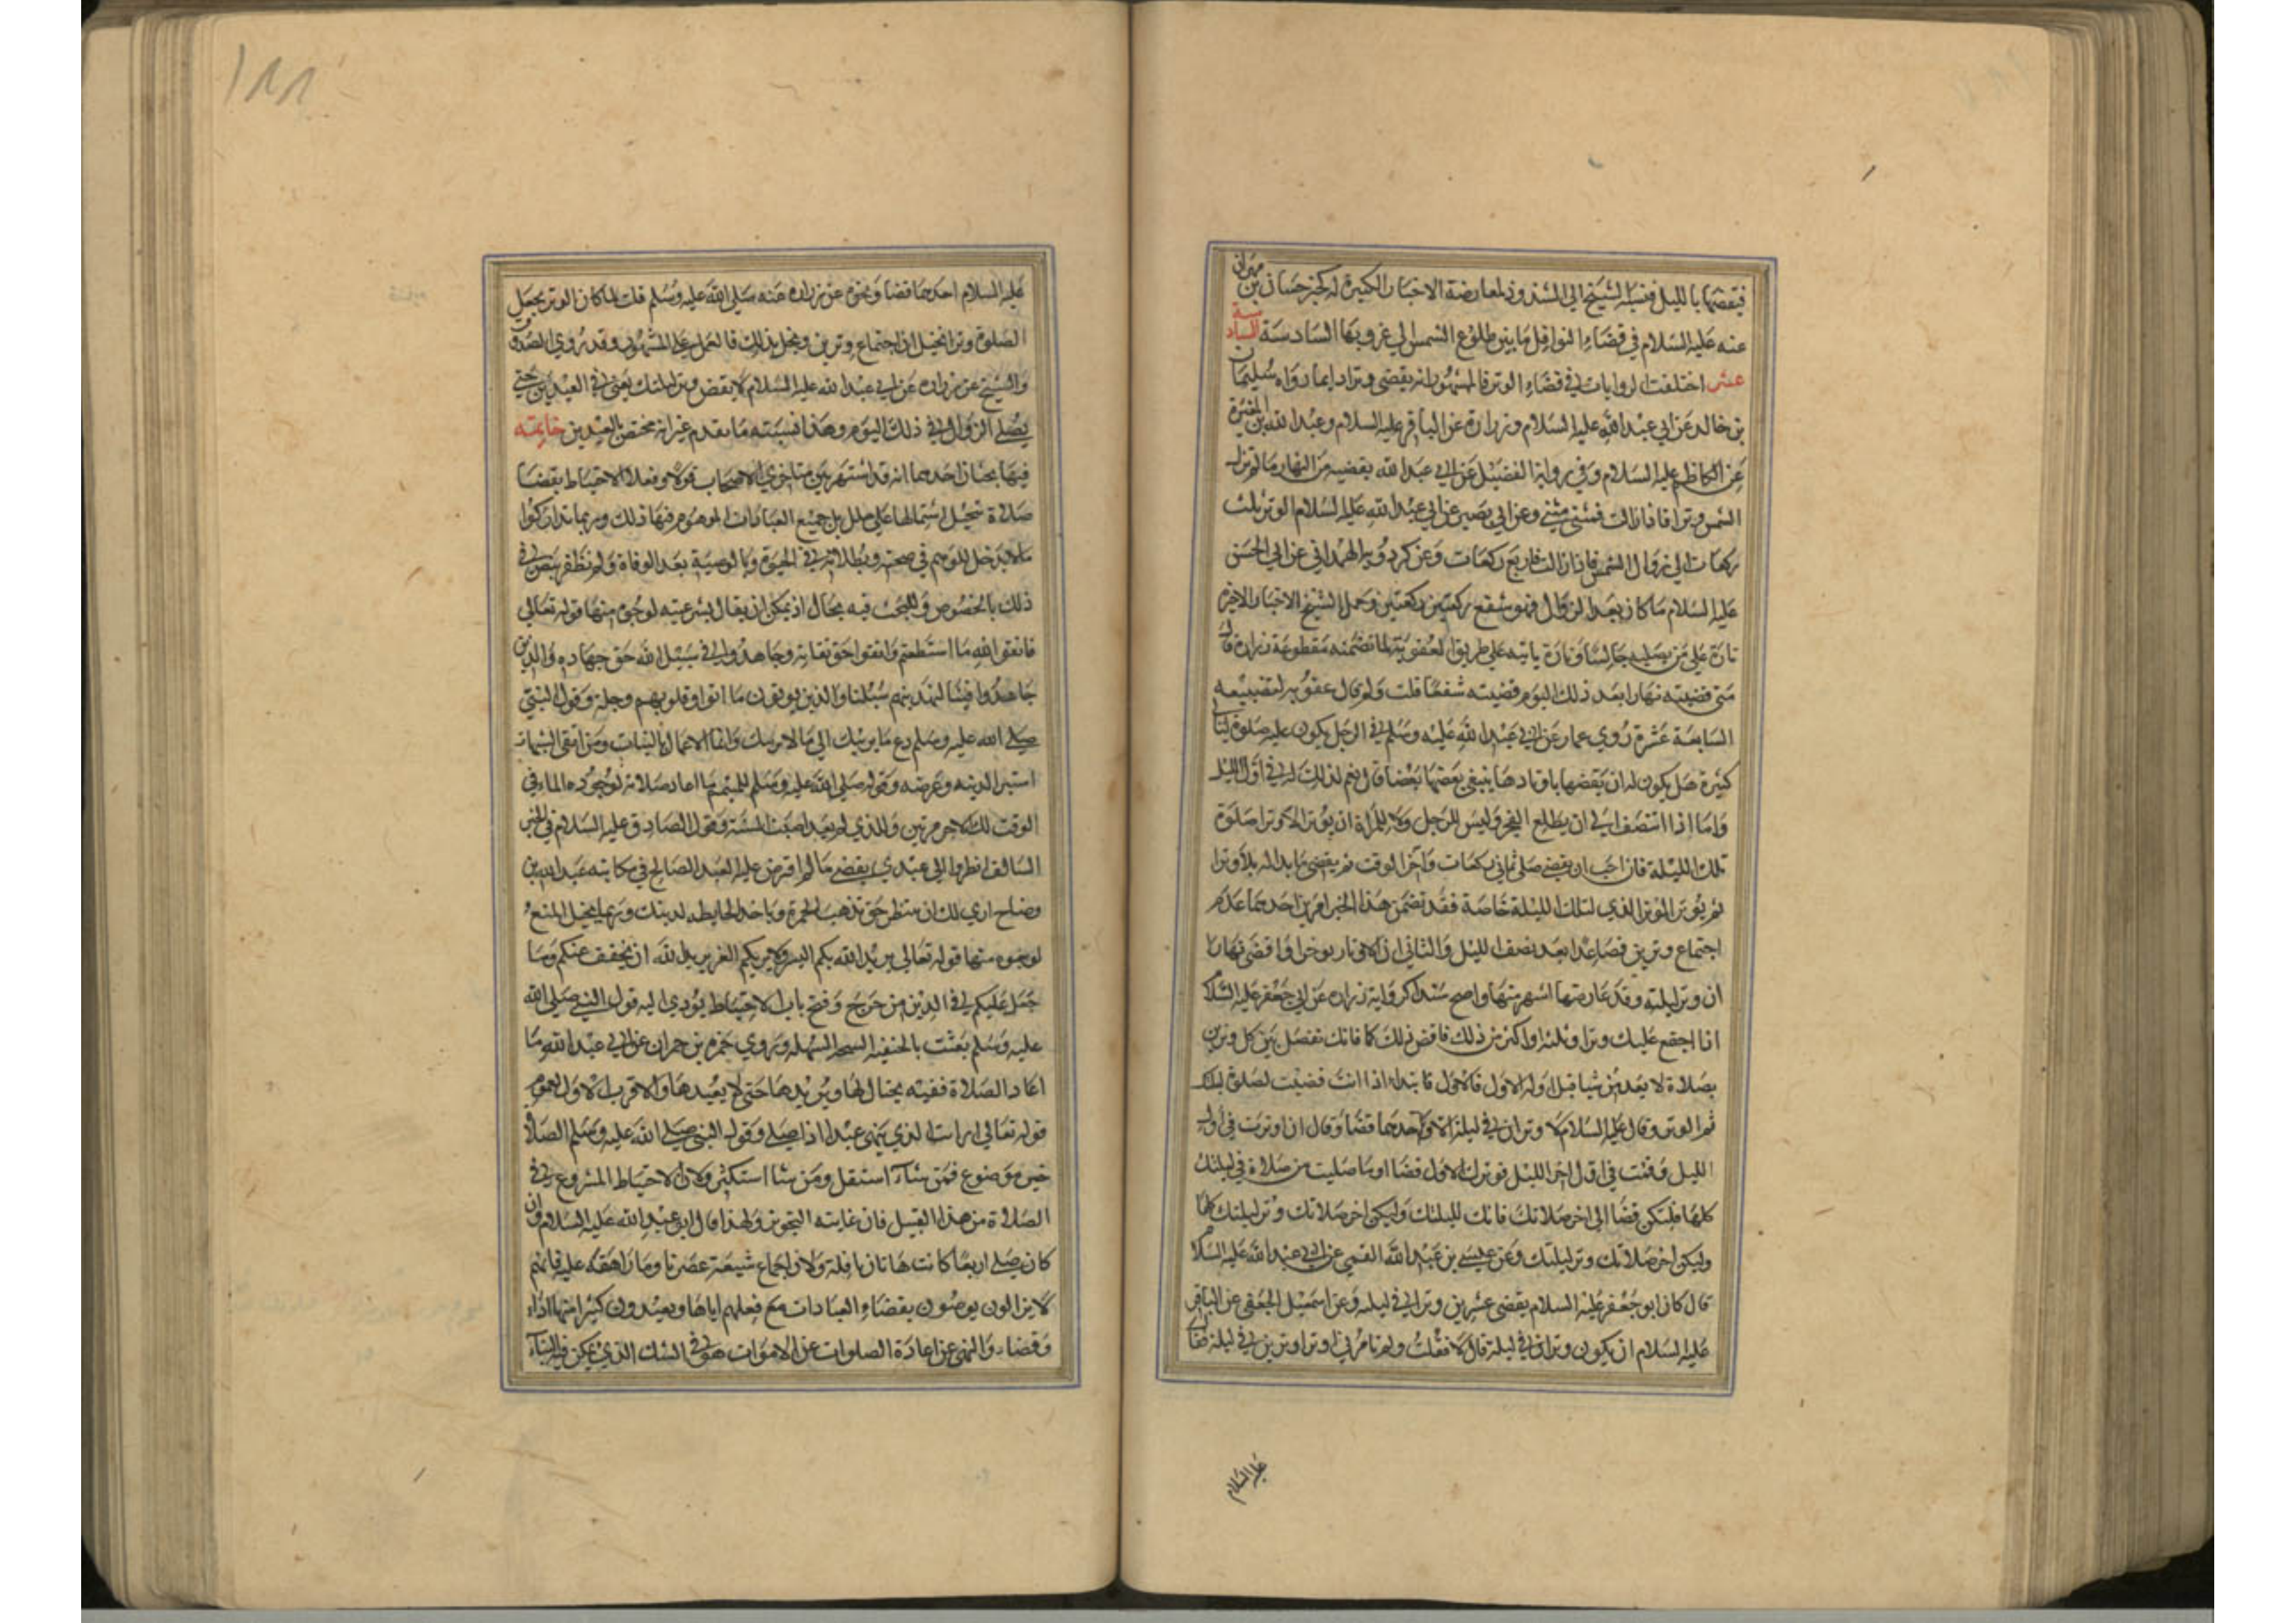 فيقضيها بالليل فنسبه الشيخ الى الشذوذ لمعارضة الاخبار الكثيرة له كخبر حسان بن مهران
عنه عليه السلام في قضاء النوافل ما بين طلوع الشمس الى غروبها السادسة السادسة
عشر اختلفت الروايات في قضاء الوتر فالمشهور انه يقضى وترا دايما رواه سليمان
بن خالد عن ابي عبد الله عليه السلام وزرارة عن الباقر عليه السلام وعبد الله بن المغيرة
عن الكاظم عليه السلام وفي رواية الفضيل عن ابي عبد الله يقضيه من النهار ما لم تزل
الشمس وترا فاذا زالت فمثنى مثنى وعن ابي بصير عن ابي عبد الله عليه السلام الوتر ثلث
ركعات الى زوال الشمس فاذا زالت فاربع ركعات وعن كردويه الهمداني عن ابي الحسن
عليه السلام ما كان بعد الزوال فهو شفع ركعتين ركعتين وحمل الشيخ الاخبار الاخيرة
تارة على من يصليه جالسا وتارة ياتيه على طريق العقوبة لما تضمنه مقطوعة زرارة قال
متى قضيته نهارا بعد ذلك اليوم قضيته شفعا قلت ولم قال عقوبه لتضييعه
السابعة عشرة روي عمار عن ابي عبد الله عليه وسلم في الرجل يكون عليه صلوة ليال
كثيرة هل يكون له ان يقضيها باوتادها يتبع بعضها بعضا قال نعم لذلك له في اول الليل
واما اذا انتصف الى ان يطلع الفجر وليس للرجل ولا للمراة ان يوتر الا وتر صلوة
تلك الليلة فان احب ان يقضي صلى ثماني ركعات واخر الوقت ثم يقضي ما بدا له بلا وترا
ثم يوتر الوتر الذي لتلك الليلة خاصة فقد تضمن هذا الخبر امرين احدهما عدم
اجتماع وترين فصاعدا بعد نصف الليل والثاني ان الاوتار يوخر اذا قضى نهارا
ان وتر ليلته وقد عارضها اشهر منها واصح سندا كرواية زرارة عن ابي جعفر عليه السلام
اذا اجتمع عليك وتران او ثلثه او اكثر من ذلك فاقض ذلك كما فاتك تفصل بين كل وترين
بصلاة لا تقدمن شيا قبل اوله الاول فالاول تبدا اذا انت قضيت لصلوة ليلتك
ثم الوتر وقال عليه السلام لا وتران في ليلة الا واحدهما قضا وقال ان اوترت في اول
الليل وقمت في اول اخر الليل فوترك الاول قضا وما صليت من صلاة في ليلتك
كلها فليكن قضا الى اخر صلاتك فانك لليلتك وليكن اخر صلاتك وتر ليلتك كلها
وليكن اخر صلاتك وتر ليلتك وعن عيسى بن عبد الله القمي عن ابي عبد الله عليه السلام
قال كان ابو جعفر عليه السلام يقضي عشرين وترا في ليلة وعن اسمعيل الجعفي عن الباقر
عليه السلام ان يكون وتران في ليلة قال لا فقلت ولم تامرني اوتر وترين في ليلة فقال
عليه السلام
١٨٨
عليه السلام احدهما قضا ونحوه عن زرارة عنه صلى الله عليه وسلم قلت لما كان الوتر يجعل
الصلوة وترا تخيل ان اجتماع وترين يخل بذلك فالعمل على المشهور وقد روي الصدوق
والشيخ عن زرارة عن ابي عبد الله عليه السلام لا يقض وتر ليلتك يعني في العيدين حتى
يصلي الزوال في ذلك اليوم وهذا فيه ما تقدم غير انه مختص بالعيدين خاتمته
فيها بحثان احدهما انه قد اشتهر بين متاخري الاصحاب قولا وفعلا الاحتياط بقضا
صلاة تخيل اشتمالها على خلل بل جميع العبادات الموهوم فيها ذلك وربما تداركوا
ما لا يدخل للوهم في صحته وبطلانه في الحيوة وبالوصية بعد الوفاة ولم نظفر بنص في
ذلك بالخصوص وللبحث فيه مجال اذ يمكن ان يقال بشرعيته لوجوه منها قوله تعالى
فاتقوا الله ما استطعتم واتقوا حق تقاته وجاهدوا في سبيل الله حق جهاده والذين
جاهدوا فينا لنهدينهم سبلنا والذين يوتون ما اتوا وقلوبهم وجلة وقول النبي
صلى الله عليه وسلم دع ما يريبك الى ما لا يريبك وانما الاعمال بالنيات ومن اتقى الشبهات
استبرا لدينه وعرضه وقوله صلى الله عليه وسلم للمتيمم لما اعاد صلاته لوجوده الماء في
الوقت لك الاجر مرتين وللذي لم يعد اصبت السنة وقول الصادق عليه السلام في الخبر
السالف انظروا الى عبدي يقضي ما لم افترض عليه العبد الصالح في مكاتبه عبد الله بن
وضاح ارى لك ان تنتظر حتى تذهب الحمرة وياخذ الحايطه لدينك وربما يخيل المنع
لوجوه منها قوله تعالى يريد الله بكم اليسر ولا يريد بكم العسر يريد الله ان يخفف عنكم وما
جعل عليكم في الدين من حرج وفتح باب الاحتياط يودي اليه قول النبي صلى الله
عليه وسلم بعثت بالحنيفية السمحة السهلة وروي حمزة بن حمران عن ابي عبد الله ما
اعاد الصلاة فقيه يحتال لها ويدبرها حتى لا يعيدها والاقرب الاول لعموم
قوله تعالى ارايت الذي ينهى عبدا اذا صلى وقول النبي صلى الله عليه وسلم الصلاة
خير موضوع فمن شاء استقل ومن شا استكثر ولان الاحتياط المشروع في
الصلاة من هذا القبيل فان غايته التجويز ولهذا قال ابو عبد الله عليه السلام وان
كان صلى اربعا كانت هاتان نافلة ولان اجماع شيعة عصرنا وما راهقه عليه فانهم
لا يزالون يوصون بقضاء العبادات مع فعلهم اياها ويعيدون كثيرا منها اداء
وقضاء والنهي عن اعادة الصلوات عن الاموات هو في الشك الذي يمكن فيه البناء